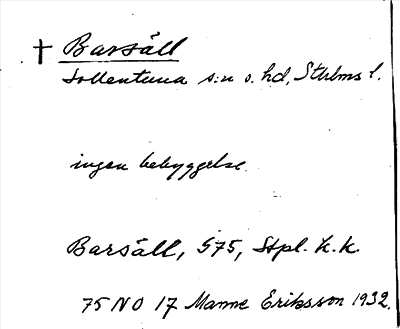 † Barsäll
Sollentuna s:n o. hd, Sthlms l.
ingen bebyggelse.
Barsäll, 575, Stpl. k.k.
75 NO 17 Manne Eriksson 1932.